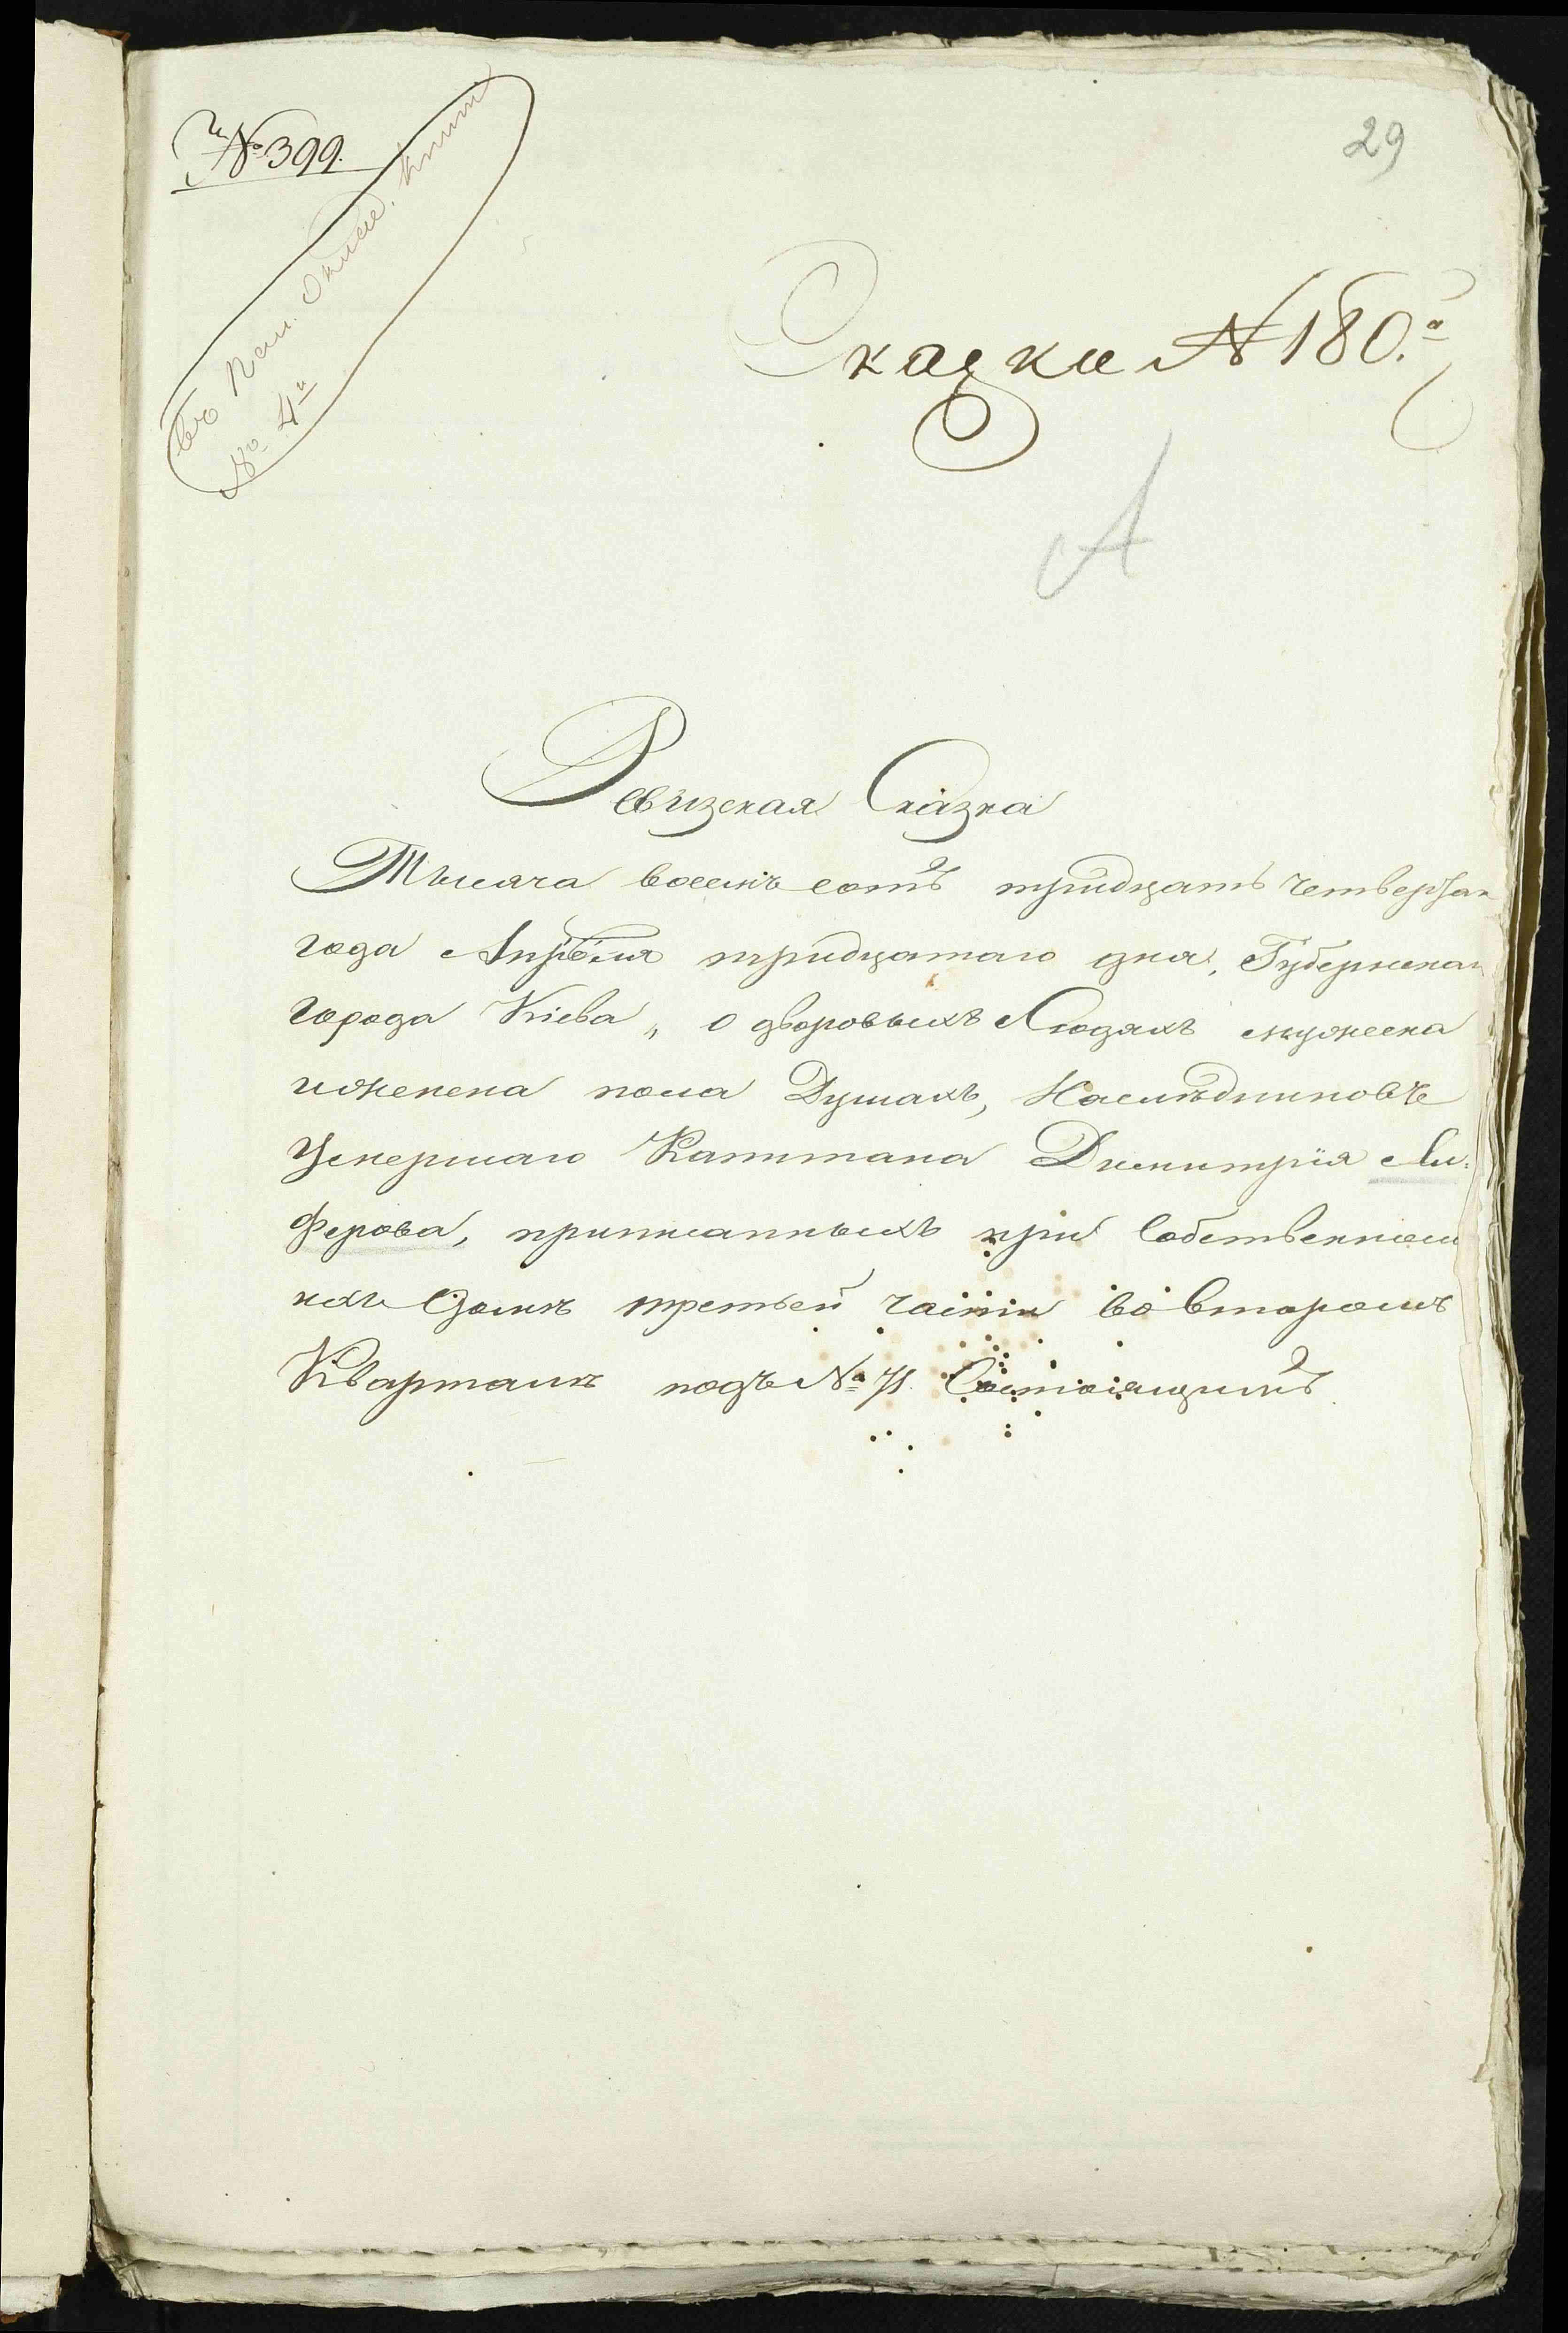 № 399.
29
въ
№ 4й
Сказка № 180.а
А
Ревизская Сказка
Тысяча восемь сотъ тридцать четвертаг
года Апреля тридцатаго дня, Губернскаг
города Кіева, о дворовыхъ Людяхъ мужеска
и женска пола Душахъ, Наслѣдниковъ
Умершаго Капитана Дмитрія
ферова, приписанныхъ при собственном
ихъ домѣ третьей части во второмъ
Кварталѣ подъ № 71. Состоящимъ